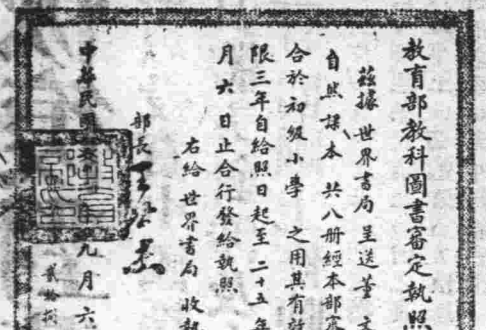 教育部教科圖書審定執照
茲據 世界書局 呈送董 文
自然課本 共八册經本部審
合於初級小學 之用其有效
限三年自給照日起至 二十五年
月 六 日止合行發給執照
右給 世界書局 收執
部長 王
中華民國 九 月 六
貳拾